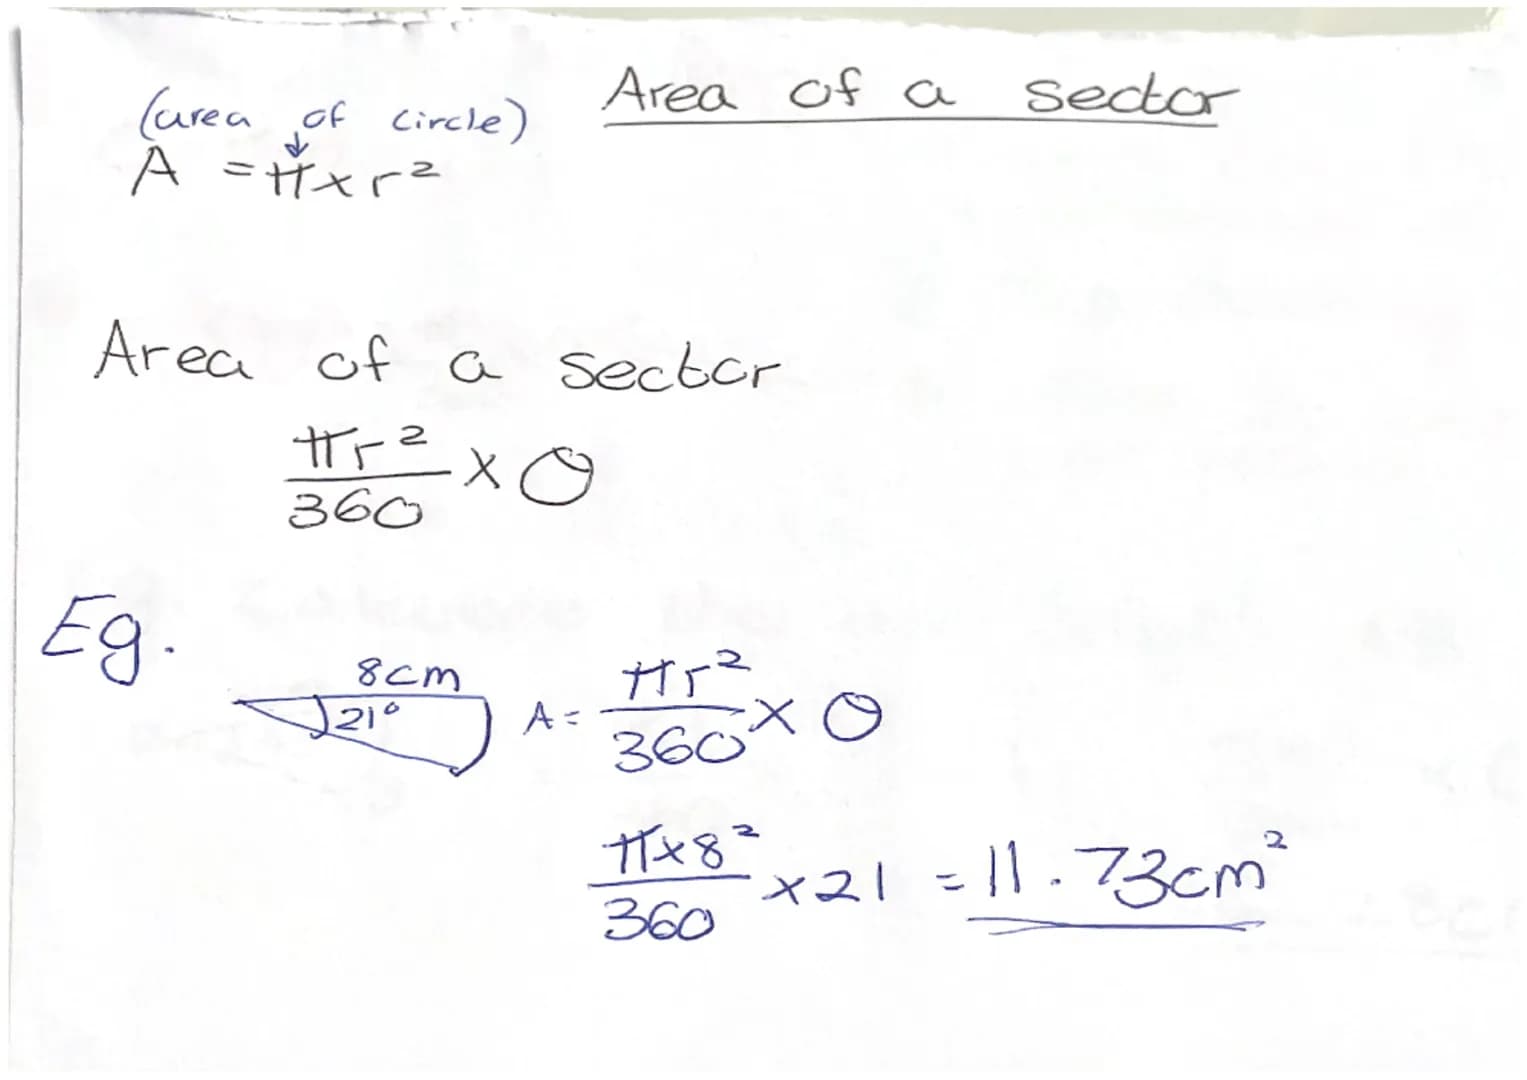 Area of a sector
(area of circle)
A = π x r²
Area of a sector
πr²
360
x θ
Eg.
8cm
21°
A = πr²
360
x θ
π x 8²
360
x 21 = 11.73cm²